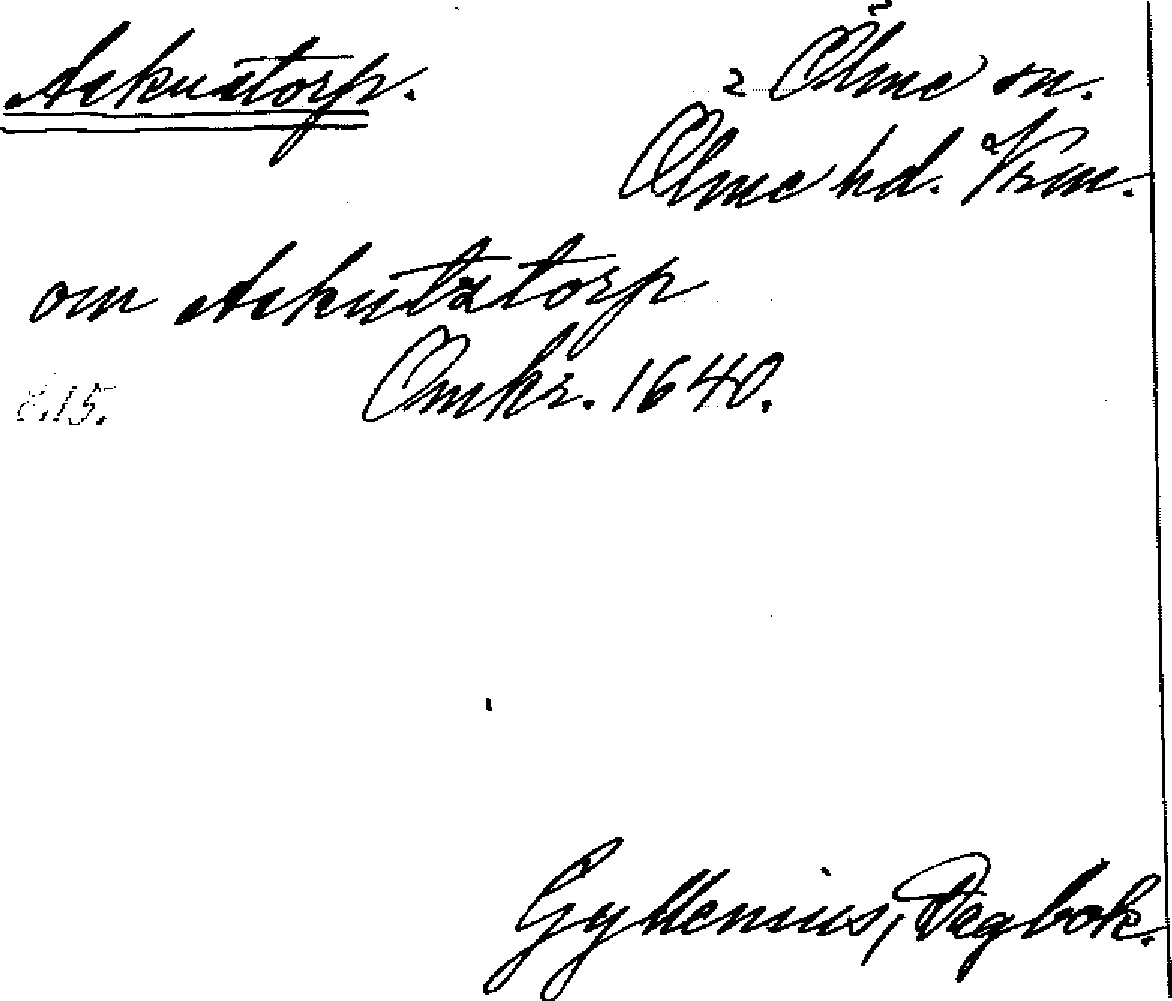 Askustorp. 2 Ölme sn.
Ölme hd. Vrm.
om Askutztorp
s.15. Omkr. 1640.
Gyllenius, Dagbok.